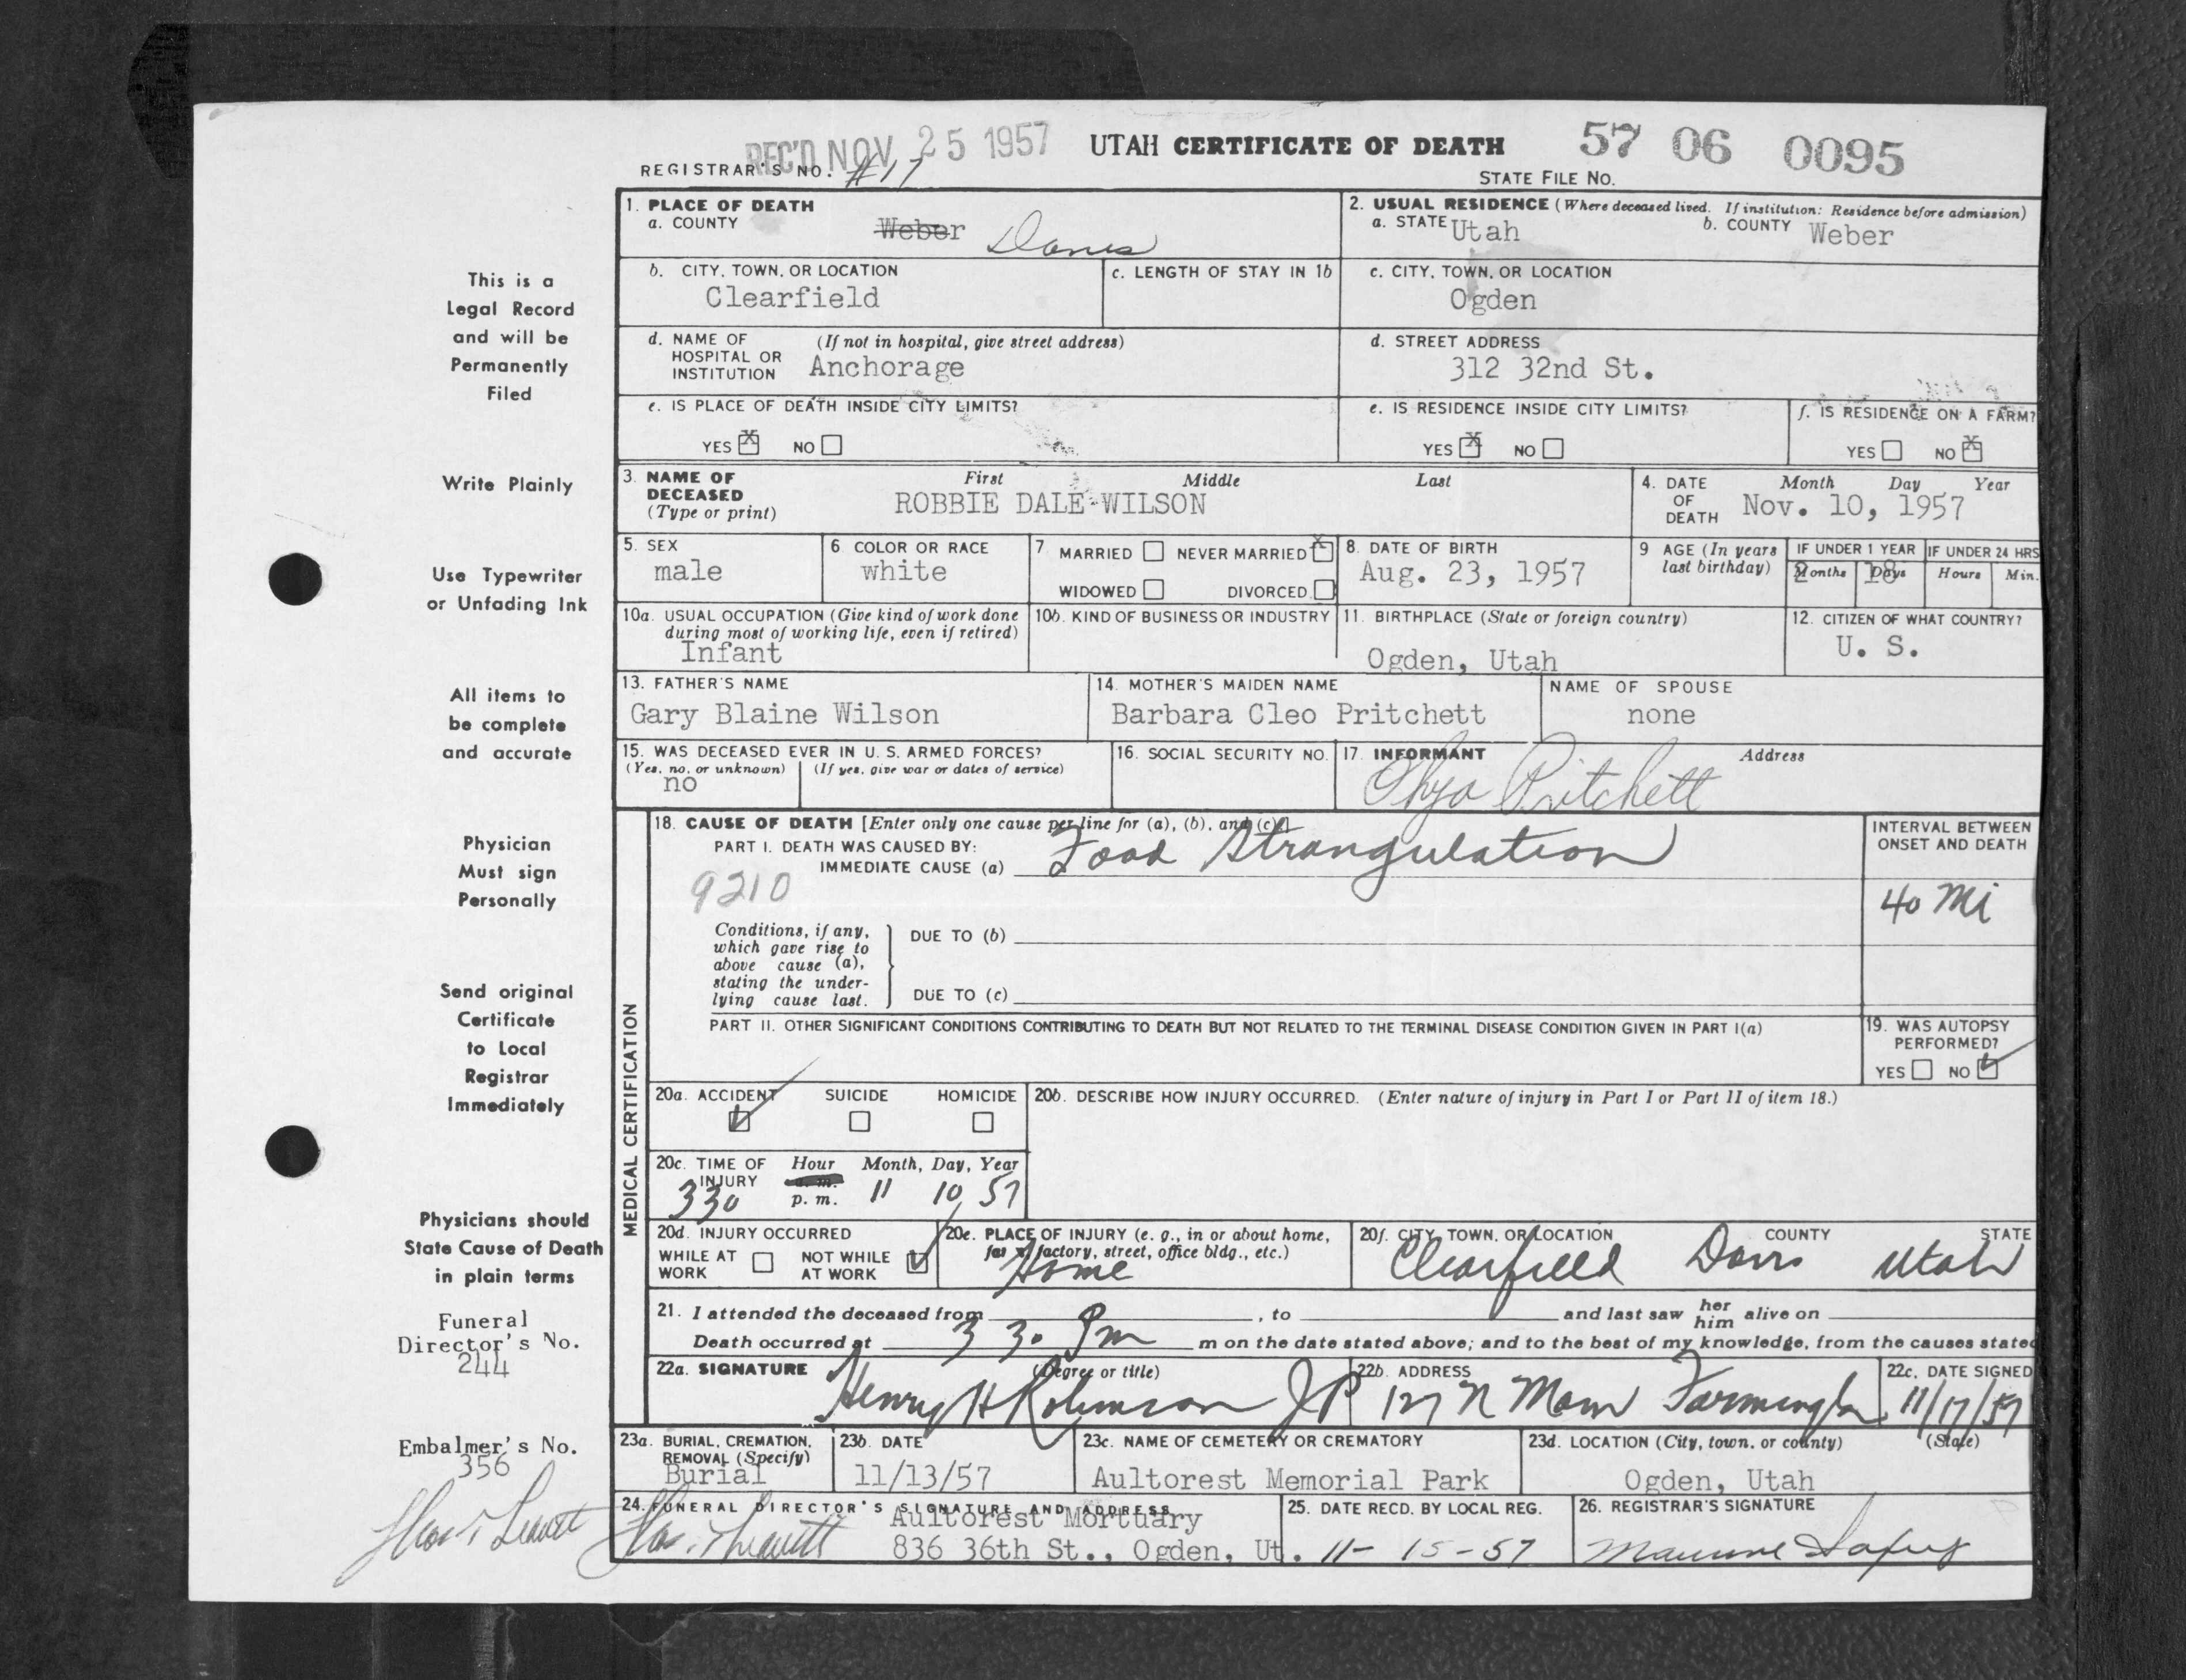 REC'D NOV 25 1957 UTAH CERTIFICATE OF DEATH 57 06 0095
REGISTRAR'S NO. #17 STATE FILE NO.
1. PLACE OF DEATH
a. COUNTY Weber Davis
2. USUAL RESIDENCE (Where deceased lived. If institution: Residence before admission)
a. STATE Utah b. COUNTY Weber
b. CITY, TOWN, OR LOCATION
Clearfield
c. LENGTH OF STAY IN 1b
c. CITY, TOWN, OR LOCATION
Ogden
d. NAME OF HOSPITAL OR INSTITUTION (If not in hospital, give street address)
Anchorage
d. STREET ADDRESS
312 32nd St.
e. IS PLACE OF DEATH INSIDE CITY LIMITS?
YES X NO
e. IS RESIDENCE INSIDE CITY LIMITS?
YES X NO
f. IS RESIDENCE ON A FARM?
YES NO X
3. NAME OF DECEASED (Type or print) First Middle Last
ROBBIE DALE WILSON
4. DATE OF DEATH Month Day Year
Nov. 10, 1957
5. SEX
male
6. COLOR OR RACE
white
7 MARRIED NEVER MARRIED X
WIDOWED DIVORCED
8. DATE OF BIRTH
Aug. 23, 1957
9 AGE (In years last birthday)
IF UNDER 1 YEAR IF UNDER 24 HRS
Months 2 Days 18 Hours Min.
10a. USUAL OCCUPATION (Give kind of work done during most of working life, even if retired)
Infant
10b. KIND OF BUSINESS OR INDUSTRY
11. BIRTHPLACE (State or foreign country)
Ogden, Utah
12. CITIZEN OF WHAT COUNTRY?
U. S.
13. FATHER'S NAME
Gary Blaine Wilson
14. MOTHER'S MAIDEN NAME
Barbara Cleo Pritchett
NAME OF SPOUSE
none
15. WAS DECEASED EVER IN U. S. ARMED FORCES?
(Yes, no, or unknown) (If yes, give war or dates of service)
no
16. SOCIAL SECURITY NO.
17. INFORMANT Address
Pritchett
MEDICAL CERTIFICATION
18. CAUSE OF DEATH [Enter only one cause per line for (a), (b), and (c)]
PART I. DEATH WAS CAUSED BY:
IMMEDIATE CAUSE (a) Food Strangulation
9210
INTERVAL BETWEEN ONSET AND DEATH
40 Mi
Conditions, if any, which gave rise to above cause (a), stating the underlying cause last.
DUE TO (b)
DUE TO (c)
PART II. OTHER SIGNIFICANT CONDITIONS CONTRIBUTING TO DEATH BUT NOT RELATED TO THE TERMINAL DISEASE CONDITION GIVEN IN PART I(a)
19. WAS AUTOPSY PERFORMED?
YES NO ✓
20a. ACCIDENT ✓ SUICIDE HOMICIDE
20b. DESCRIBE HOW INJURY OCCURRED. (Enter nature of injury in Part I or Part II of item 18.)
20c. TIME OF INJURY Hour Month, Day, Year
330 a. m. p. m. 11 10 57
20d. INJURY OCCURRED
WHILE AT WORK NOT WHILE AT WORK ✓
20e. PLACE OF INJURY (e. g., in or about home, farm, factory, street, office bldg., etc.)
Home
20f. CITY, TOWN, OR LOCATION COUNTY STATE
Clearfield Davis Utah
21. I attended the deceased from , to and last saw her him alive on
Death occurred at 3 30 Pm m on the date stated above; and to the best of my knowledge, from the causes stated
22a. SIGNATURE (Degree or title)
Henry H Robinson JP
22b. ADDRESS
127 N Main Farmington
22c. DATE SIGNED
11/17/57
23a. BURIAL, CREMATION, REMOVAL (Specify)
Burial
23b. DATE
11/13/57
23c. NAME OF CEMETERY OR CREMATORY
Aultorest Memorial Park
23d. LOCATION (City, town, or county) (State)
Ogden, Utah
24. FUNERAL DIRECTOR'S SIGNATURE AND ADDRESS
Aultorest Mortuary
836 36th St., Ogden, Ut.
25. DATE RECD. BY LOCAL REG.
11-15-57
26. REGISTRAR'S SIGNATURE
This is a
Legal Record
and will be
Permanently
Filed
Write Plainly
Use Typewriter
or Unfading Ink
All items to
be complete
and accurate
Physician
Must sign
Personally
Send original
Certificate
to Local
Registrar
Immediately
Physicians should
State Cause of Death
in plain terms
Funeral
Director's No.
244
Embalmer's No.
356